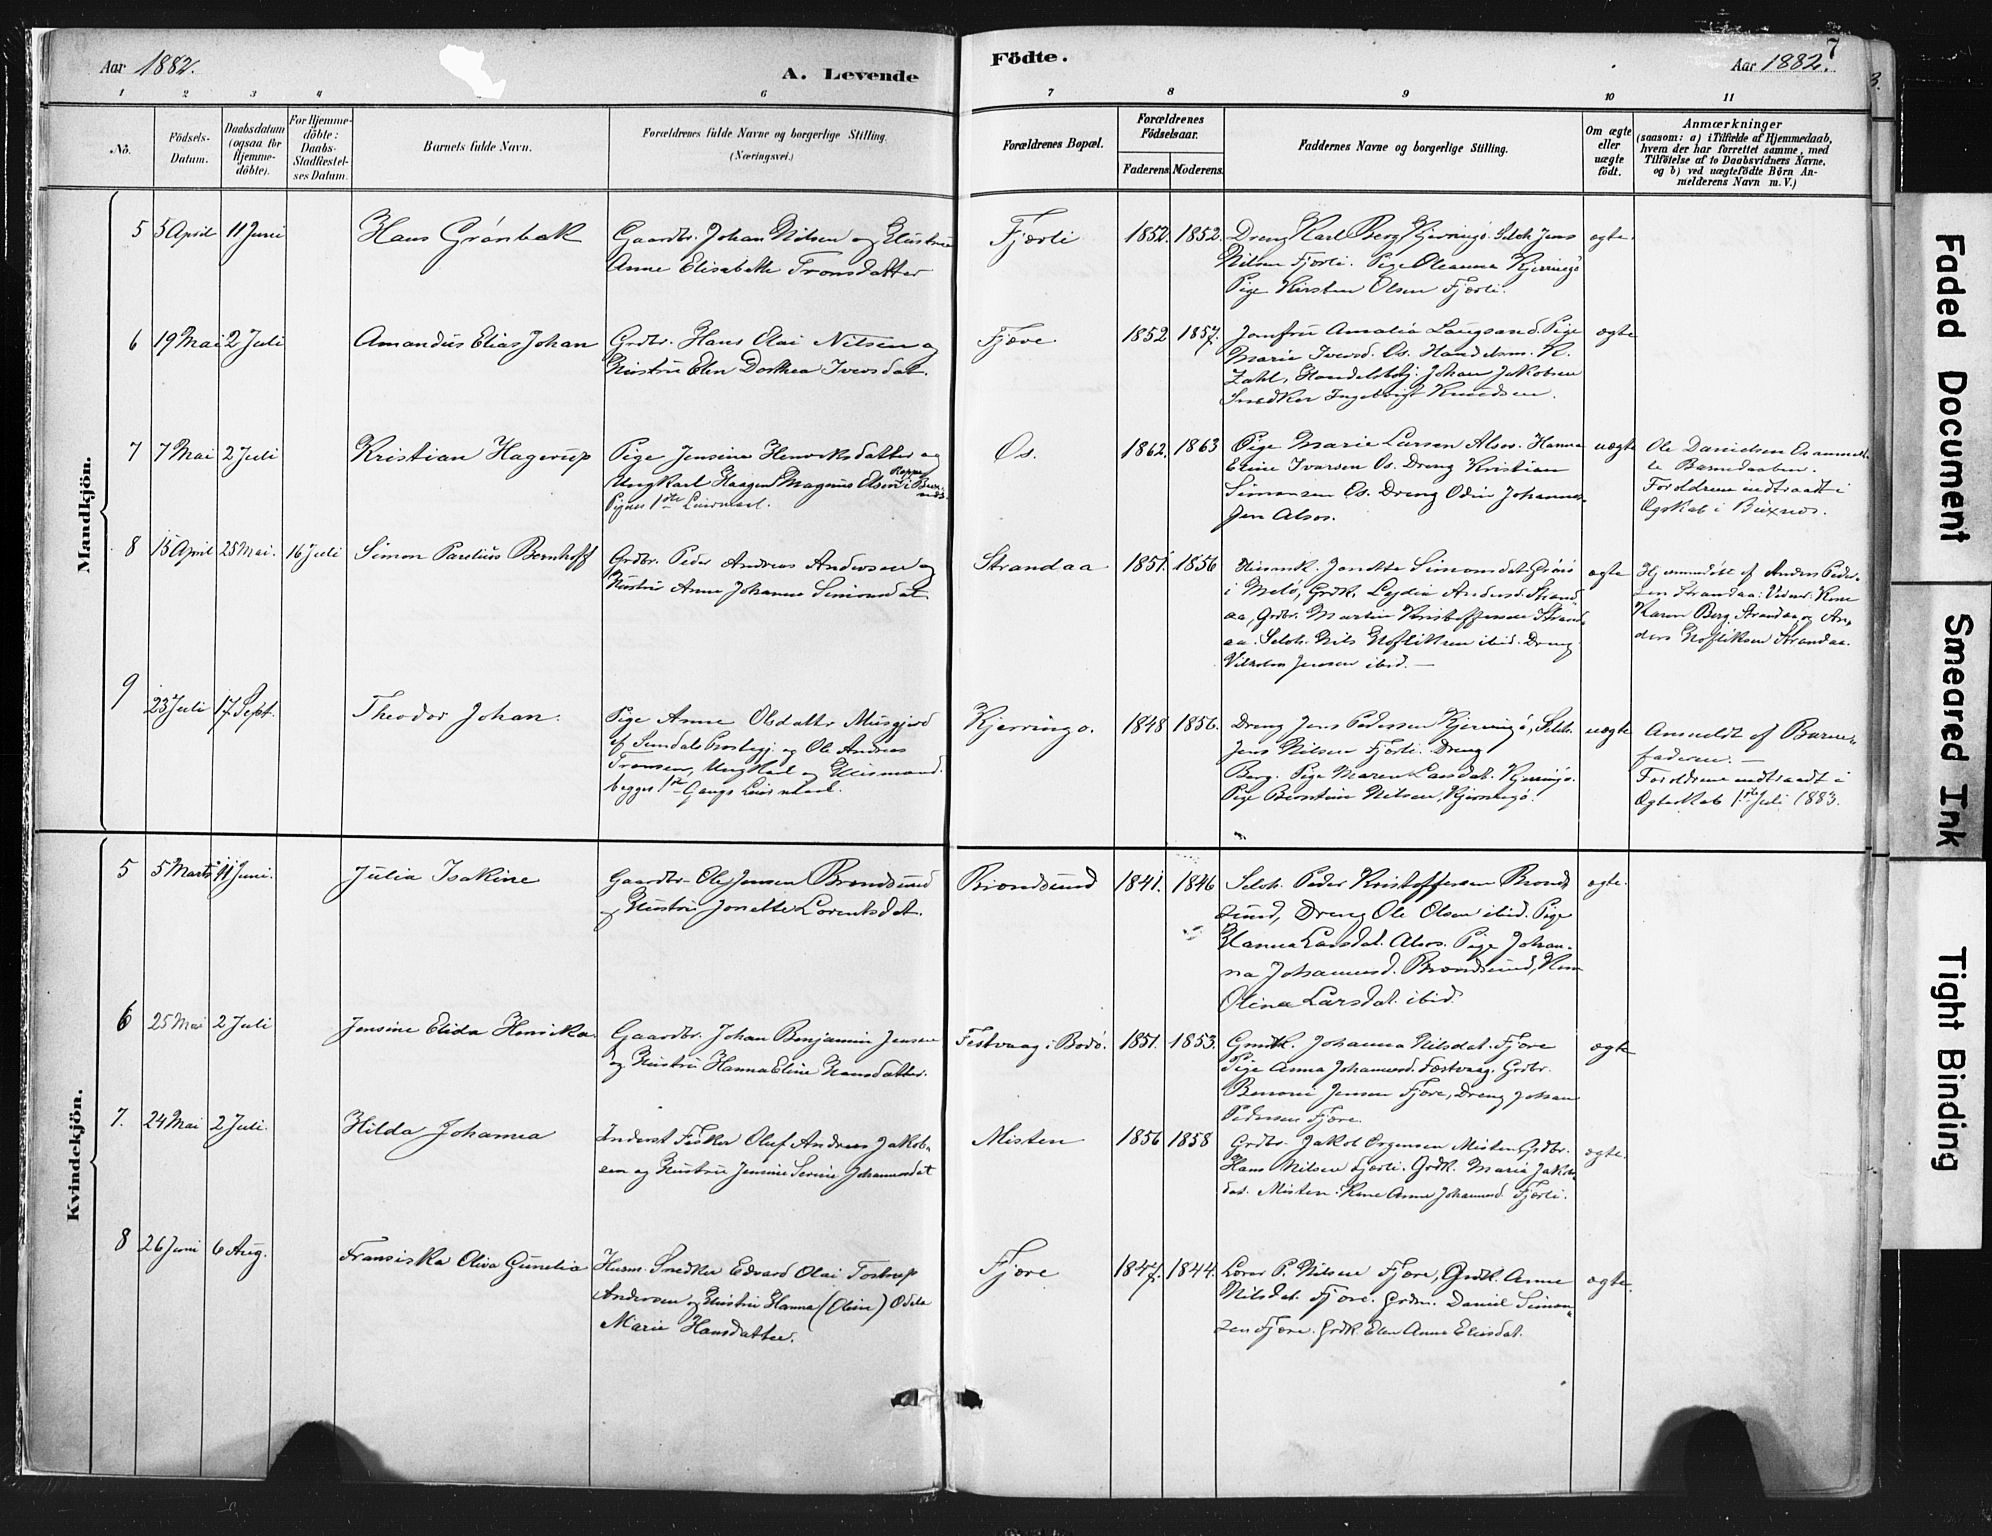 Aar 1882.
A. Levende
Födte.
7
Aar 1882.
1 2 3 4 6 7 8 9 10 11
No.
Födsels-Datum.
Daabsdatum (ogsaa for Hjemme-döbte).
For Hjemme-döbte: Daabs-Stadfæstel-ses Datum.
Barnets fulde Navn.
Forældrenes fulde Navne og borgerlige Stilling.
(Næringsvei.)
Forældrenes Bopæl.
Forældrenes Födselsaar.
Faderens
Moderens.
Faddernes Navne og borgerlige Stilling.
Om ægte eller uægte födt.
Anmærkninger
(saasom: a) i Tilfælde af Hjemmedaab,
hvem der har forrettet samme, med
Tilföielse af to Daabsvidners Navne.
og b) ved uægtefödte Börn An-
melderens Navn m. V.)
Mandkjön.
5 5 April 11 Juni Hans Grönbæk
Gaardbr. Johan Nilsen og Hustru
Anne Elisabeth Tronsdatter
Fjærli 1852. 1852.
Dreng Karl Berg Kjerringö. Selvh. Jens
Nilsen Fjærli. Pige Oleanna Kjerringö
Pige Kirsten Olsen Fjærli.
ægte.
6 19 Mai 2 Juli Amandus Elias Johan
Grdbr. Hans Olai Nilsen og
Hustru Elen Dorthea Iversdat.
Fjære 1852 1857.
Jomfru Amalia Langsand. Pige
Marie Iversd. Os. Handelsm. K.
Zahl, Handelsbetj. Johan Jakobsen
Snedker Ingebrigt Knudsen.
ægte
7 7 Mai 2 Juli Kristian Hagerup
Pige Jensine Henriksdatter og
Ungkarl Haagen Magnus Olsen i
Piges 1ste Leiermaal.
Os. 1862. 1863
Pige Marie Larsen Alsos. Hanna
Eline Ivarsen Os. Dreng Kristian
Simonsen Os. Dreng Odin Johanne-
sen Alsos.
uægte
Ole Danielsen Os anmeld-
te Barnedaaben.
Forældrene indtraadt i
Ægteskab i Buxnæs.
8 15 April 25 Mai. 16 Juli Simon Parelius Bernhoff
Grdbr. Peder Andreas Andersen og
Hustru Anne Johanna Simonsdat.
Strandaa 1851. 1856
i Melö, Grdk. Lydia Andersd. Strand-
aa, Grdbr. Martin Kristoffersen Strand-
aa. Selvh. Nils ibid. Dreng
Vilhelm Jensen ibid. —
ægte
Hjemmedöbt af Anders Peder-
sen Strandaa: Vidner: Kone
Karen Berg, Strandaa, og An-
ders Strandaa.
9 23 Juli 17 Sept. Theodor Johan.
Pige Anne Olsdatter Musgjerd
af Sundals Præstegj. og Ole Andreas
Tronsen, Ungkarl og Husmand.
begges 1ste Gangs Leiermaal.
Kjerringö. 1848 1856.
Dreng Jens Pedersen Kjerringö, Selvh.
Jens Nilsen Fjærli. Dreng
Berg. Pige Maren Larsdat. Kjerringö.
Pige Berntine Nilsen, Kjerringö.
uægte
Anmeldt af Barne-
faderen. —
Forældrene indtraadt i
Ægteskab 1ste Juli 1883.
Kvindekjön.
5 5 Marts 11 Juni. Julia Isakine
Gaardbr. Ole Jensen Brændsund
og Hustru Jonette Lorentsdat.
Brændsund 1841. 1846
Selvh. Peder Kristoffersen Brænd-
sund, Dreng Ole Olsen ibid. Pige
Hanna Larsdat. Alsos. Pige Johan-
na Johannesd. Brændsund, Kone
Olina Larsdat. ibid.
ægte.
6 25 Mai 2 Juli Jensine Elida Henrika.
Gaardbr. Johan Benjamin Jensen
og Hustru Hanna Eline Hansdatter.
Festvaag i Bodö. 1851. 1853.
Johanna Nilsdat. Fjære
Pige Anna Johannesd. Festvaag. Grdbr.
Benoni Jensen Fjære, Dreng Johan
Pedersen Fjære.
ægte
7. 24 Mai 2 Juli. Hilda Johanna
Inderst Fisker Oluf Andreas Jakob-
sen og Hustru Jensine Serine Johannesdat
Misten 1856 1858
Grdbr. Jakob Örgensen Misten Grdbr.
Hans Nilsen Fjærli. Grdk. Maria Jakobs-
dat. Misten. Kone Anne Johannesd. Fjærli.
ægte.
8 26 Juni 6 Aug. Fransiska Oliva Gunelia
Husm. Snedker Edvard Olai Tostrup
Andersen og Hustru Hanna (Oline) Odele
Marie Hansdatter.
Fjære 1847. 1844.
Lærer P. Nilsen Fjære, Grdk. Anne
Nilsdat. Fjære. Grdm. Daniel Simon-
sen Fjære. Grdk. Elen Anna Eliasdat.
ægte.
Faded Document
Smeared Ink
Tight Binding